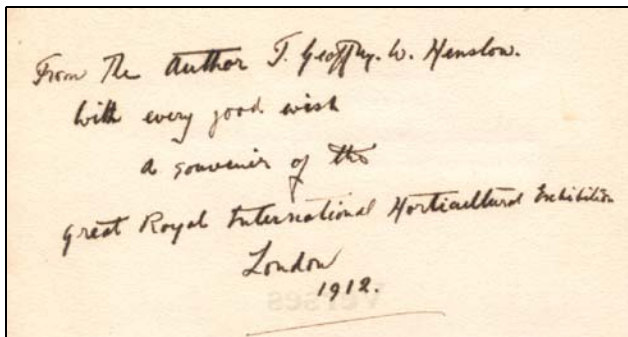 From The Author T. Geoffrey. W. Henslow.
With every good wish
a souvenir of the
great Royal International Horticultural Exhibition
London
1912.
Verses